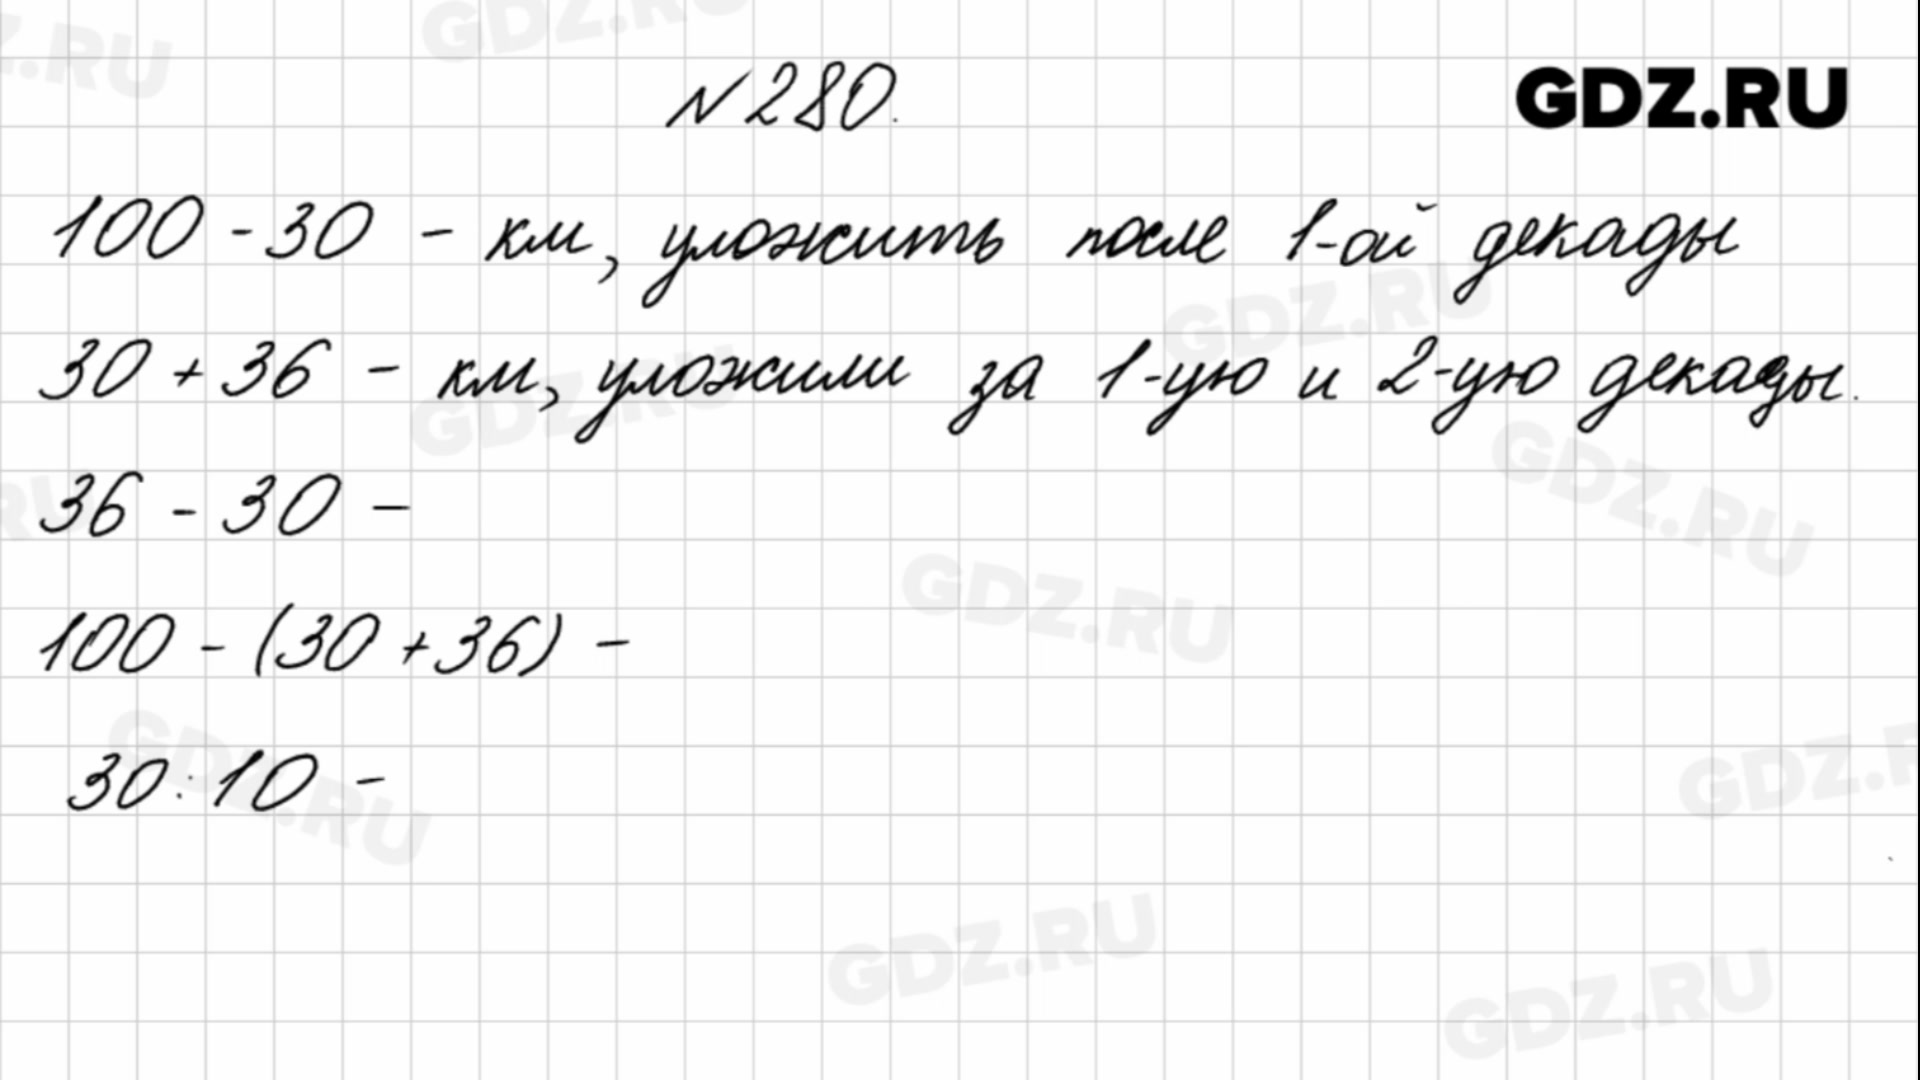 GDZ.RU
№280.
100 - 30 - км, уложить после 1-ой декады
30 + 36 - км, уложили за 1-ую и 2-ую декады.
36 - 30 -
100 - (30 + 36) -
30 : 10 -